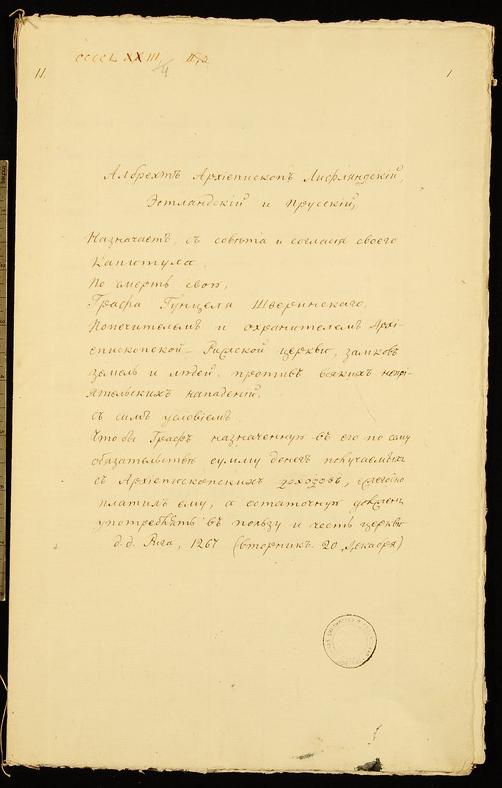 CCCCLXXIII
11.
1
Албрехтъ Архіепископъ Лифляндскій,
Эстландскій и Прусскій,
Назначаетъ, съ совѣта и согласія своего
Капитула.
По смерть свою,
Графа Гунцеля Шверинскаго.
Попечителемъ и охранителемъ Архі-
епископской - Рижской церкви, замковъ
земель и людей, противъ всякихъ непрі-
ятельскихъ нападеній.
съ симъ условіемъ
Что бы Графъ назначенную въ его по сему
обязательству сумму денегъ получаемыхъ
съ Архіепископскихъ доходовъ, ежегодно
платилъ ему, а остаточную долженъ
употреблять въ пользу и честь церкви
д.д. Рига, 1267 (вторникъ. 20 Декабря)